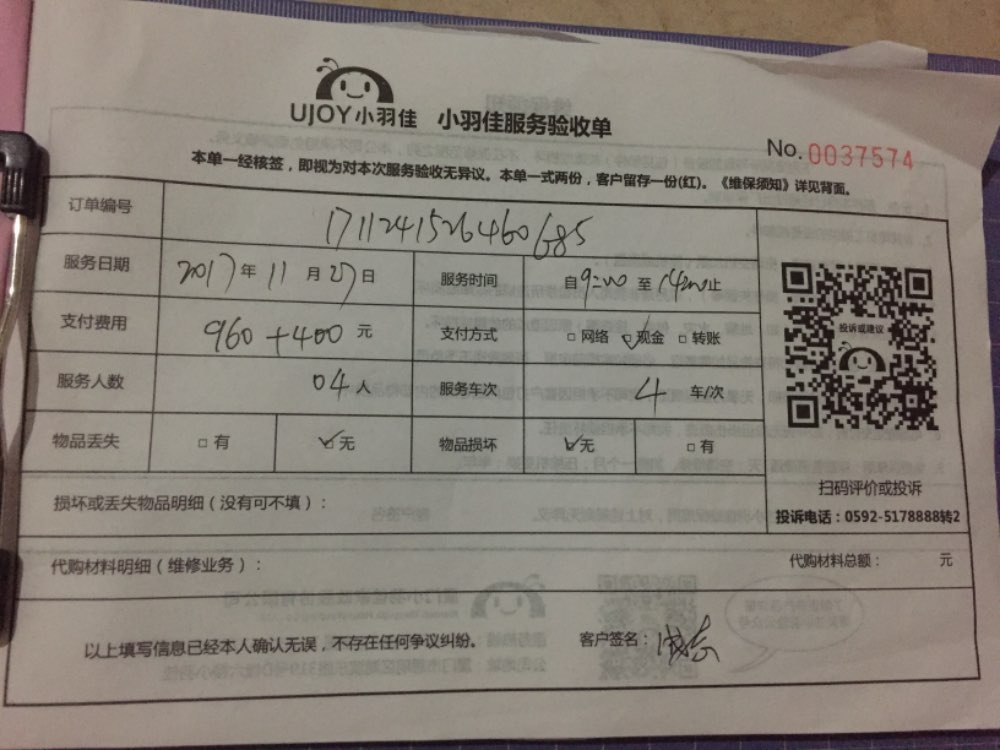 UJOY小羽佳 小羽佳服务验收单
No. 0037574
本单一经核签，即视为对本次服务验收无异议。本单一式两份，客户留存一份(红)。《维保须知》详见背面。
订单编号 1711241526460685
服务日期 2017年11月27日 服务时间 自9:00至14:00止
支付费用 960+400元 支付方式 □网络 ☑现金 □转账
服务人数 04人 服务车次 4车/次
物品丢失 □有 ☑无 物品损坏 ☑无 □有
投诉或建议
扫码评价或投诉
投诉电话：0592-5178888转2
损坏或丢失物品明细（没有可不填）：
代购材料明细（维修业务）： 代购材料总额： 元
以上填写信息已经本人确认无误，不存在任何争议纠纷。 客户签名：